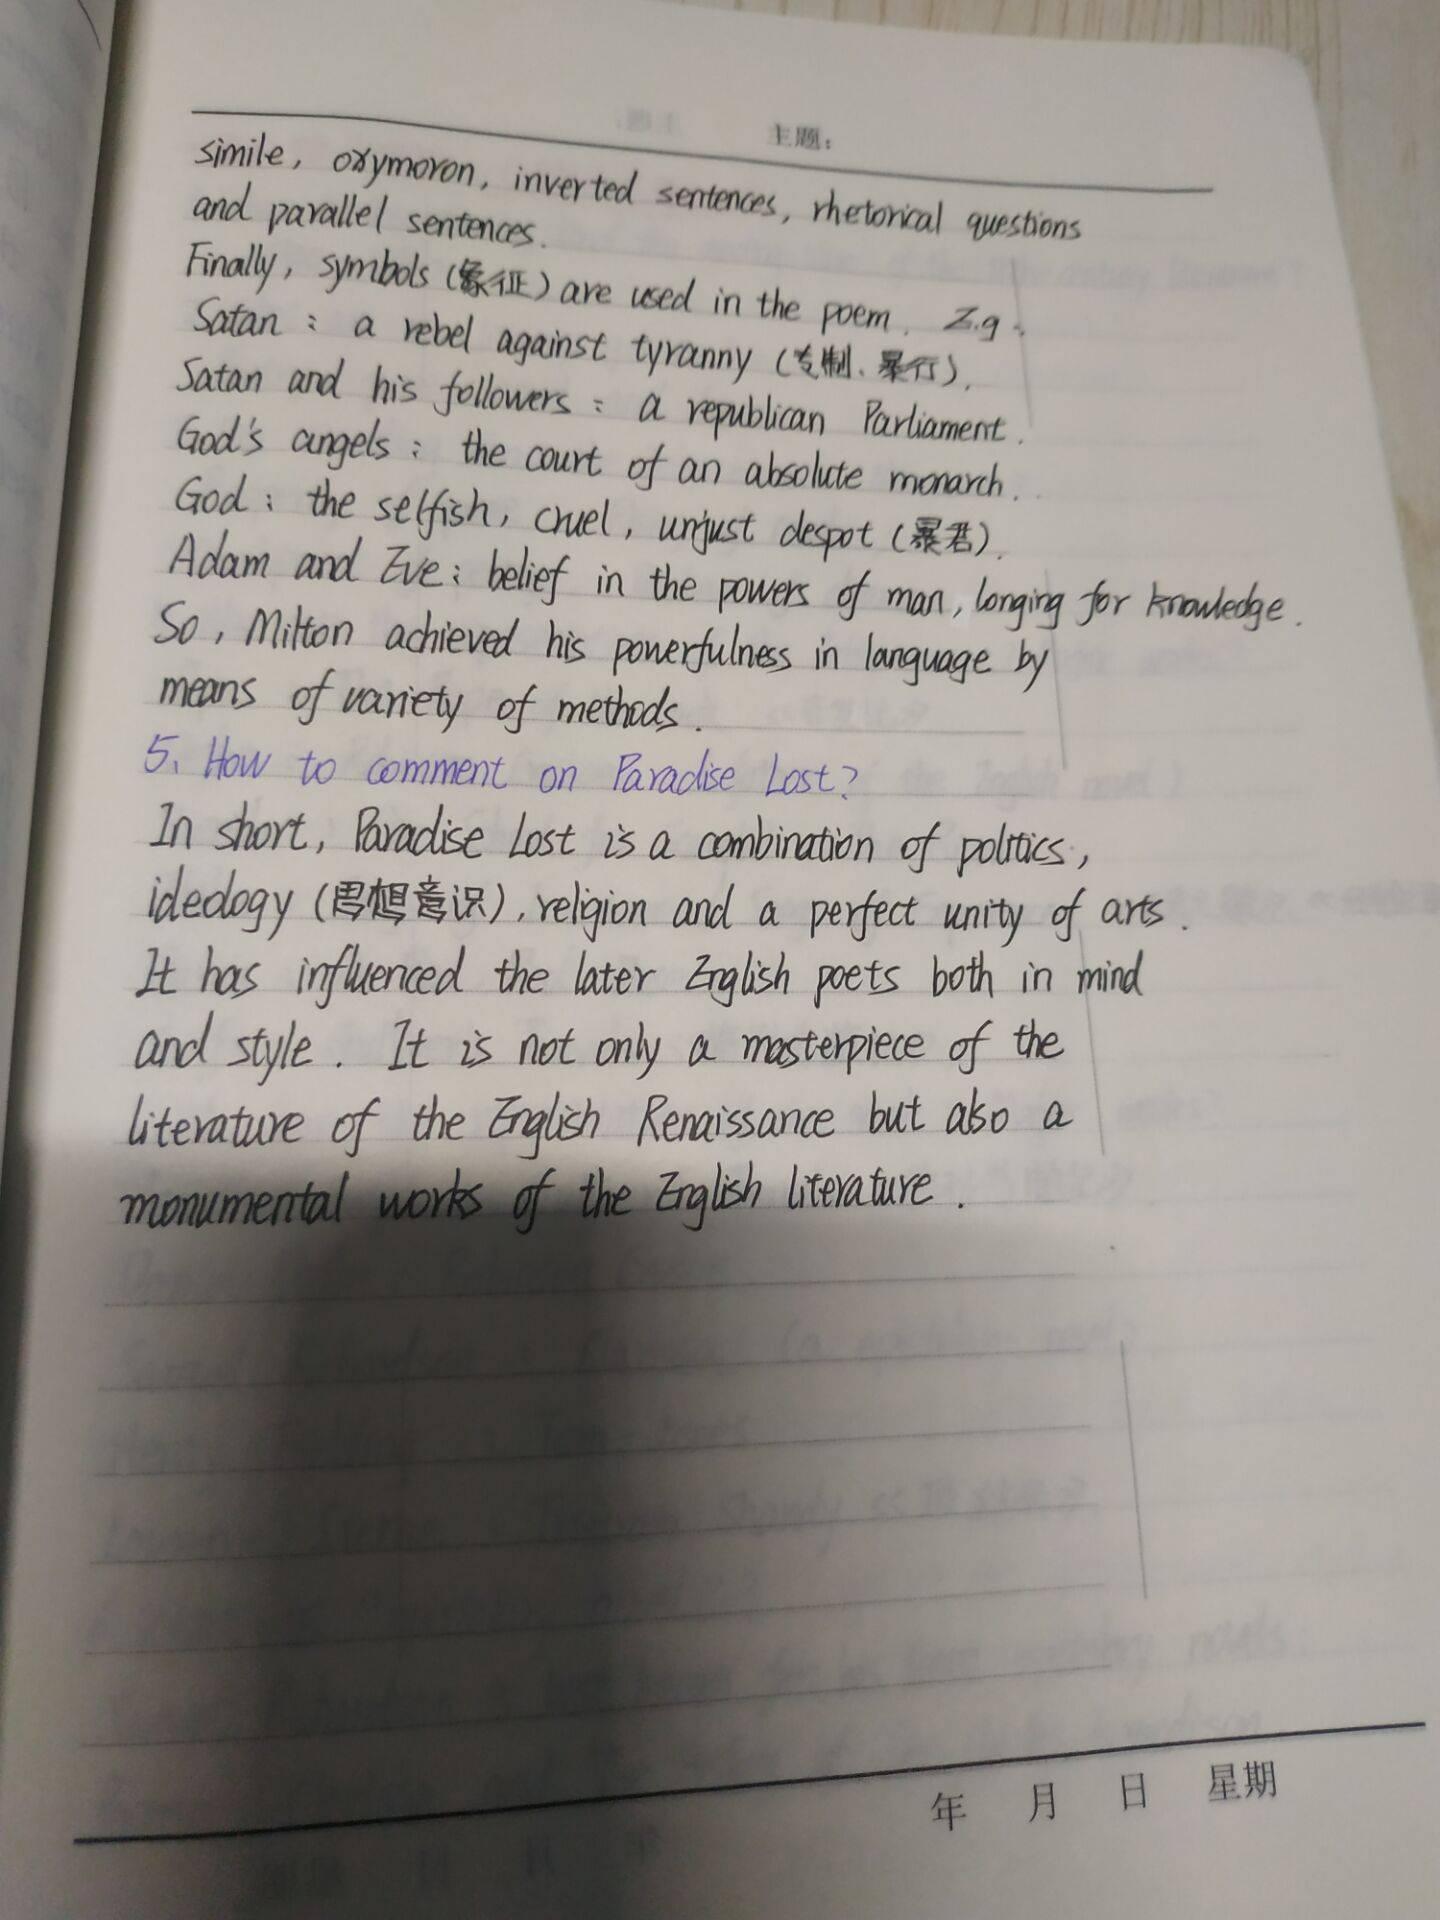 主题:
simile, oxymoron, inverted sentences, rhetorical questions
and parallel sentences.
Finally, symbols (象征) are used in the poem. E.g.
Satan: a rebel against tyranny (专制、暴行).
Satan and his followers: a republican Parliament.
God's angels: the court of an absolute monarch.
God: the selfish, cruel, unjust despot (暴君).
Adam and Eve: belief in the powers of man, longing for knowledge.
So, Milton achieved his powerfulness in language by
means of variety of methods.
5. How to comment on Paradise Lost?
In short, Paradise Lost is a combination of politics,
ideology (思想意识), religion and a perfect unity of arts.
It has influenced the later English poets both in mind
and style. It is not only a masterpiece of the
literature of the English Renaissance but also a
monumental works of the English literature.
年 月 日 星期